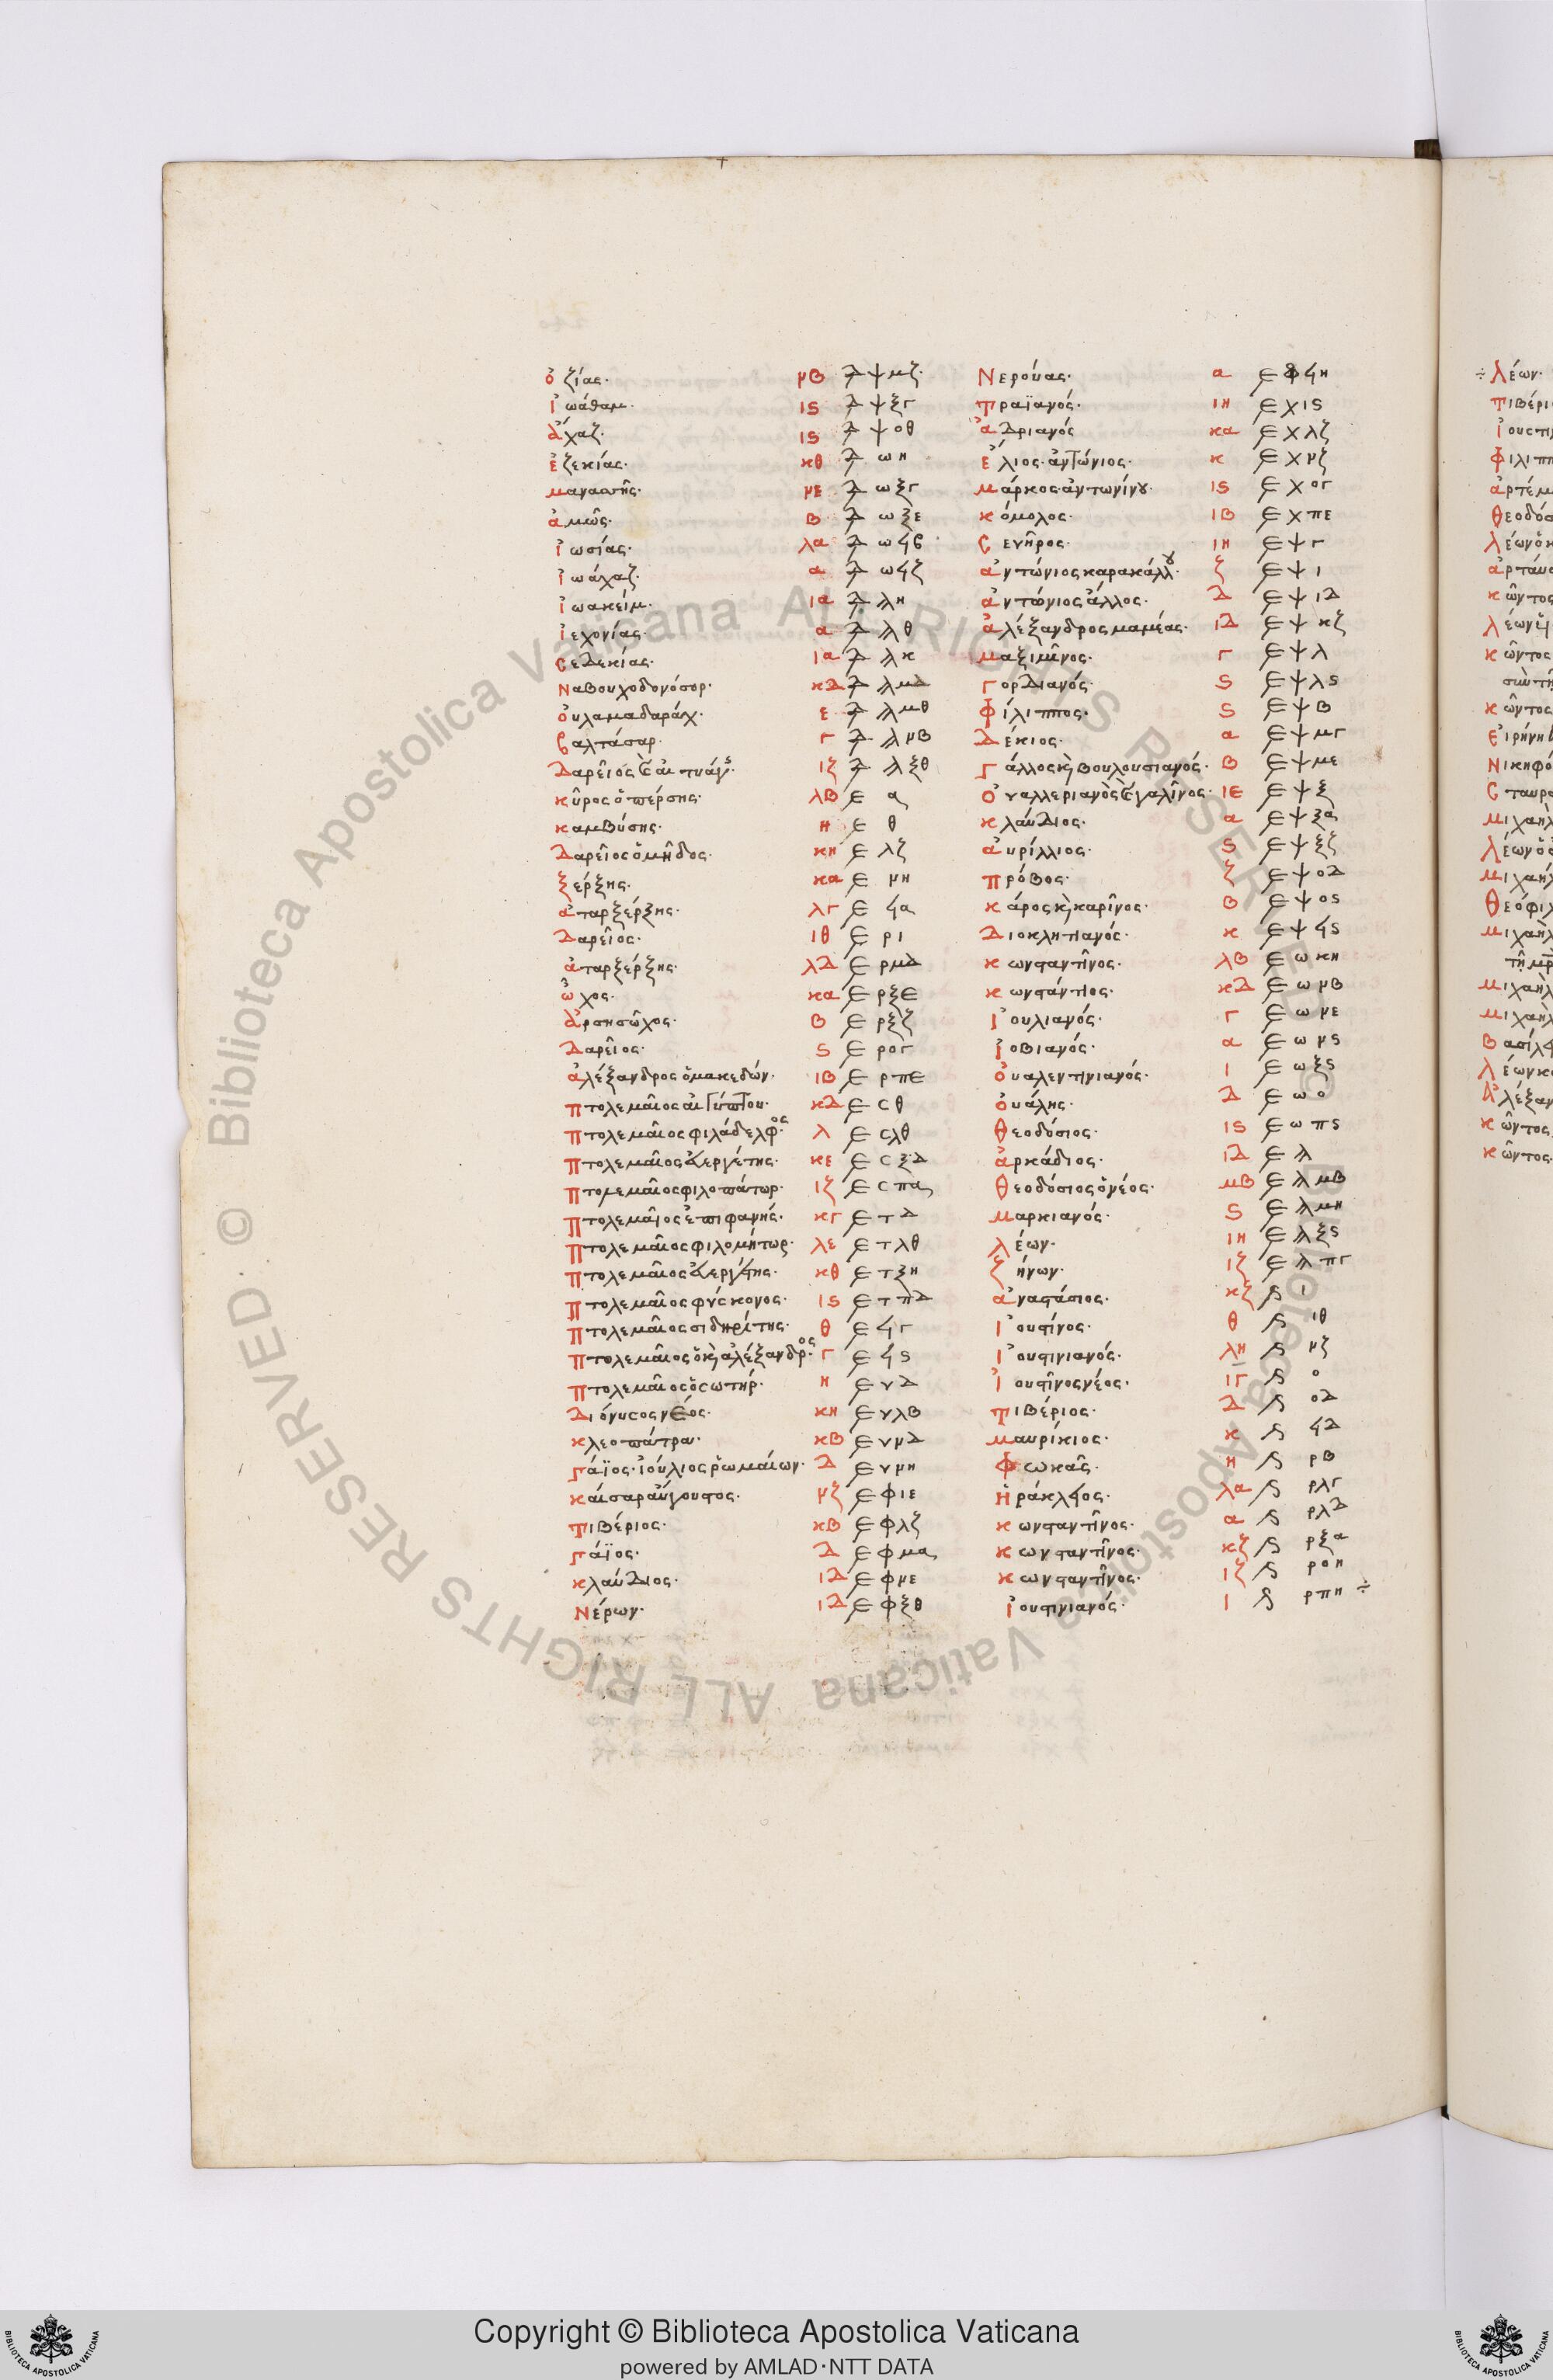 ὀζίας· μβ ͵δψμζ·
ἰωάθαμ· ις ͵δψξγ
ἄχαζ· ις ͵δψοθ
ἐζεκίας· κθ ͵δωη
μανασσῆς· νε ͵δωξγ
ἀμῶς· β ͵δωξε
ἰωσίας· λα ͵δωϟϛ
ἰωάχαζ· α ͵δωϟζ
ἰωακείμ· ια ͵δϡη
ἰεχονίας· α ͵δϡθ
σεδεκίας· ια ͵δϡκ
ναβουχοδονόσορ· κδ ͵δϡμδ
οὐλαμαδαράχ· ε ͵δϡμθ
βαλτάσαρ· γ ͵δϡνβ
δαρεῖος ιζ ͵δϡξθ
κῦρος ὁ πέρσης· λβ ͵ε α
καμβύσης· η ͵ε θ
δαρεῖος ὁ μῆδος· κη ͵ε λζ
ξέρξης· κα ͵ε νη
ἀταρξέρξης· λγ ͵ε ϟα
δαρεῖος· ιθ ͵ε ρι
ἀταρξέρξης· λδ ͵ε ρμδ
ὦχος· κα ͵ε ρξε
ἀρσησῶχος· β ͵ε ρξζ
δαρεῖος· ς ͵ε ρογ
ἀλέξανδρος ὁ μακεδών· ιβ ͵ε ρπε
πτολεμαῖος αἰγύπτου· κδ ͵ε σθ
πτολεμαῖος φιλάδελφος· λ ͵ε σλθ
πτολεμαῖος εὐεργέτης· κε ͵ε σξδ
πτομεμαῖος φιλοπάτωρ· ιζ ͵ε σπα
πτολεμαῖος ἐπιφανής· κγ ͵ε τδ
πτολεμαῖος φιλομήτωρ· λε ͵ε τλθ
πτολεμαῖος εὐεργέτης· κθ ͵ε τξη
πτολεμαῖος φύσκονος· ις ͵ε τπδ
πτολεμαῖος σιδηρίτης· θ ͵ε ϟγ
πτολεμαῖος ὁ καὶ ἀλέξανδρος· γ ͵ε ϟς
πτολεμαῖος ὁ σωτήρ· η ͵ε υδ
διόνυσος νέος· κη ͵ε υλβ
κλεοπάτρα· κβ ͵ε υνδ
γάϊος· ἰούλιος ῥωμαίων· δ ͵ε υνη
καίσαρ αὔγουστος· νζ ͵ε φιε
τιβέριος· κβ ͵ε φλζ
γάϊος· δ ͵ε φμα
κλαύδιος· ιδ ͵ε φνε
νέρων· ιδ ͵ε φξθ
Νερούας· α ͵ε φϟη
τραϊανός· ιη ͵ε χις
ἀδριανός κα ͵ε χλζ
ἔλιος· ἀντώνιος· κ ͵ε χνζ
μάρκος· ἀντωνίνου· ις ͵ε χογ
κόμοδος· ιβ ͵ε χπε
σευῆρος· ιη ͵ε ψγ
ἀντώνιος καρακάλλου· ζ ͵ε ψι
ἀντώνιος ἄλλος· δ ͵ε ψιδ
ἀλέξανδρος μαμέας· ιδ ͵ε ψκζ
μαξιμῖνος· γ ͵ε ψλ
γορδιανός· ς ͵ε ψλς
φίλιππος· ς ͵ε ψβ
δέκιος· α ͵ε ψμγ
γάλλος καὶ βουλουσιανός· β ͵ε ψμε
Οὐαλλεριανὸς καὶ γαλῖνος· ιε ͵ε ψξ
κλαύδιος· α ͵ε ψξα
αὐρίλλιος· ς ͵ε ψξζ
πρόβος· ζ ͵ε ψοδ
κάρος καὶ καρῖνος· β ͵ε ψος
διοκλητιανός· κ ͵ε ψϟς
κωνσταντῖνος· λβ ͵ε ωκη
κωνστάντιος· κδ ͵ε ωνβ
ἰουλιανός· γ ͵ε ωνε
ἰοβιανός· α ͵ε ωνς
οὐαλεντινιανός· ι ͵ε ωξς
οὐάλης· δ ͵ε ωο
θεοδόσιος· ις ͵ε ωπς
ἀρκάδιος· ιδ ͵ε ϡ
θεοδόσιος ὁ νέος· μβ ͵ε ϡμβ
μαρκιανός· ς ͵ε ϡμη
λέων· ιη ͵ε ϡξς
ζήνων· ιζ ͵ε ϡπγ
ἀναστάσιος· κζ ͵ϛ ι
ἰουστίνος· θ ͵ϛ ιθ
ἰουστινιανός· λη ͵ϛ νζ
ἰουστῖνος νέος· ιγ ͵ϛ ο
τιβέριος· δ ͵ϛ οδ
μαυρίκιος· κ ͵ϛ ϟδ
φωκᾶς· η ͵ϛ ρβ
ἡράκλειος· λα ͵ϛ ρλγ
κωνσταντῖνος· α ͵ϛ ρλδ
κωνσταντῖνος· κζ ͵ϛ ρξα
κωνσταντῖνος· ιζ ͵ϛ ροη
ἰουστινιανός· ι ͵ϛ ρπη ÷
÷ λέων·
© Biblioteca Apostolica Vaticana ALL RIGHTS RESERVED
© Biblioteca Apostolica Vaticana ALL RIGHTS RESERVED
Copyright © Biblioteca Apostolica Vaticana
powered by AMLAD·NTT DATA
BIBLIOTECA APOSTOLICA VATICANA
BIBLIOTECA APOSTOLICA VATICANA